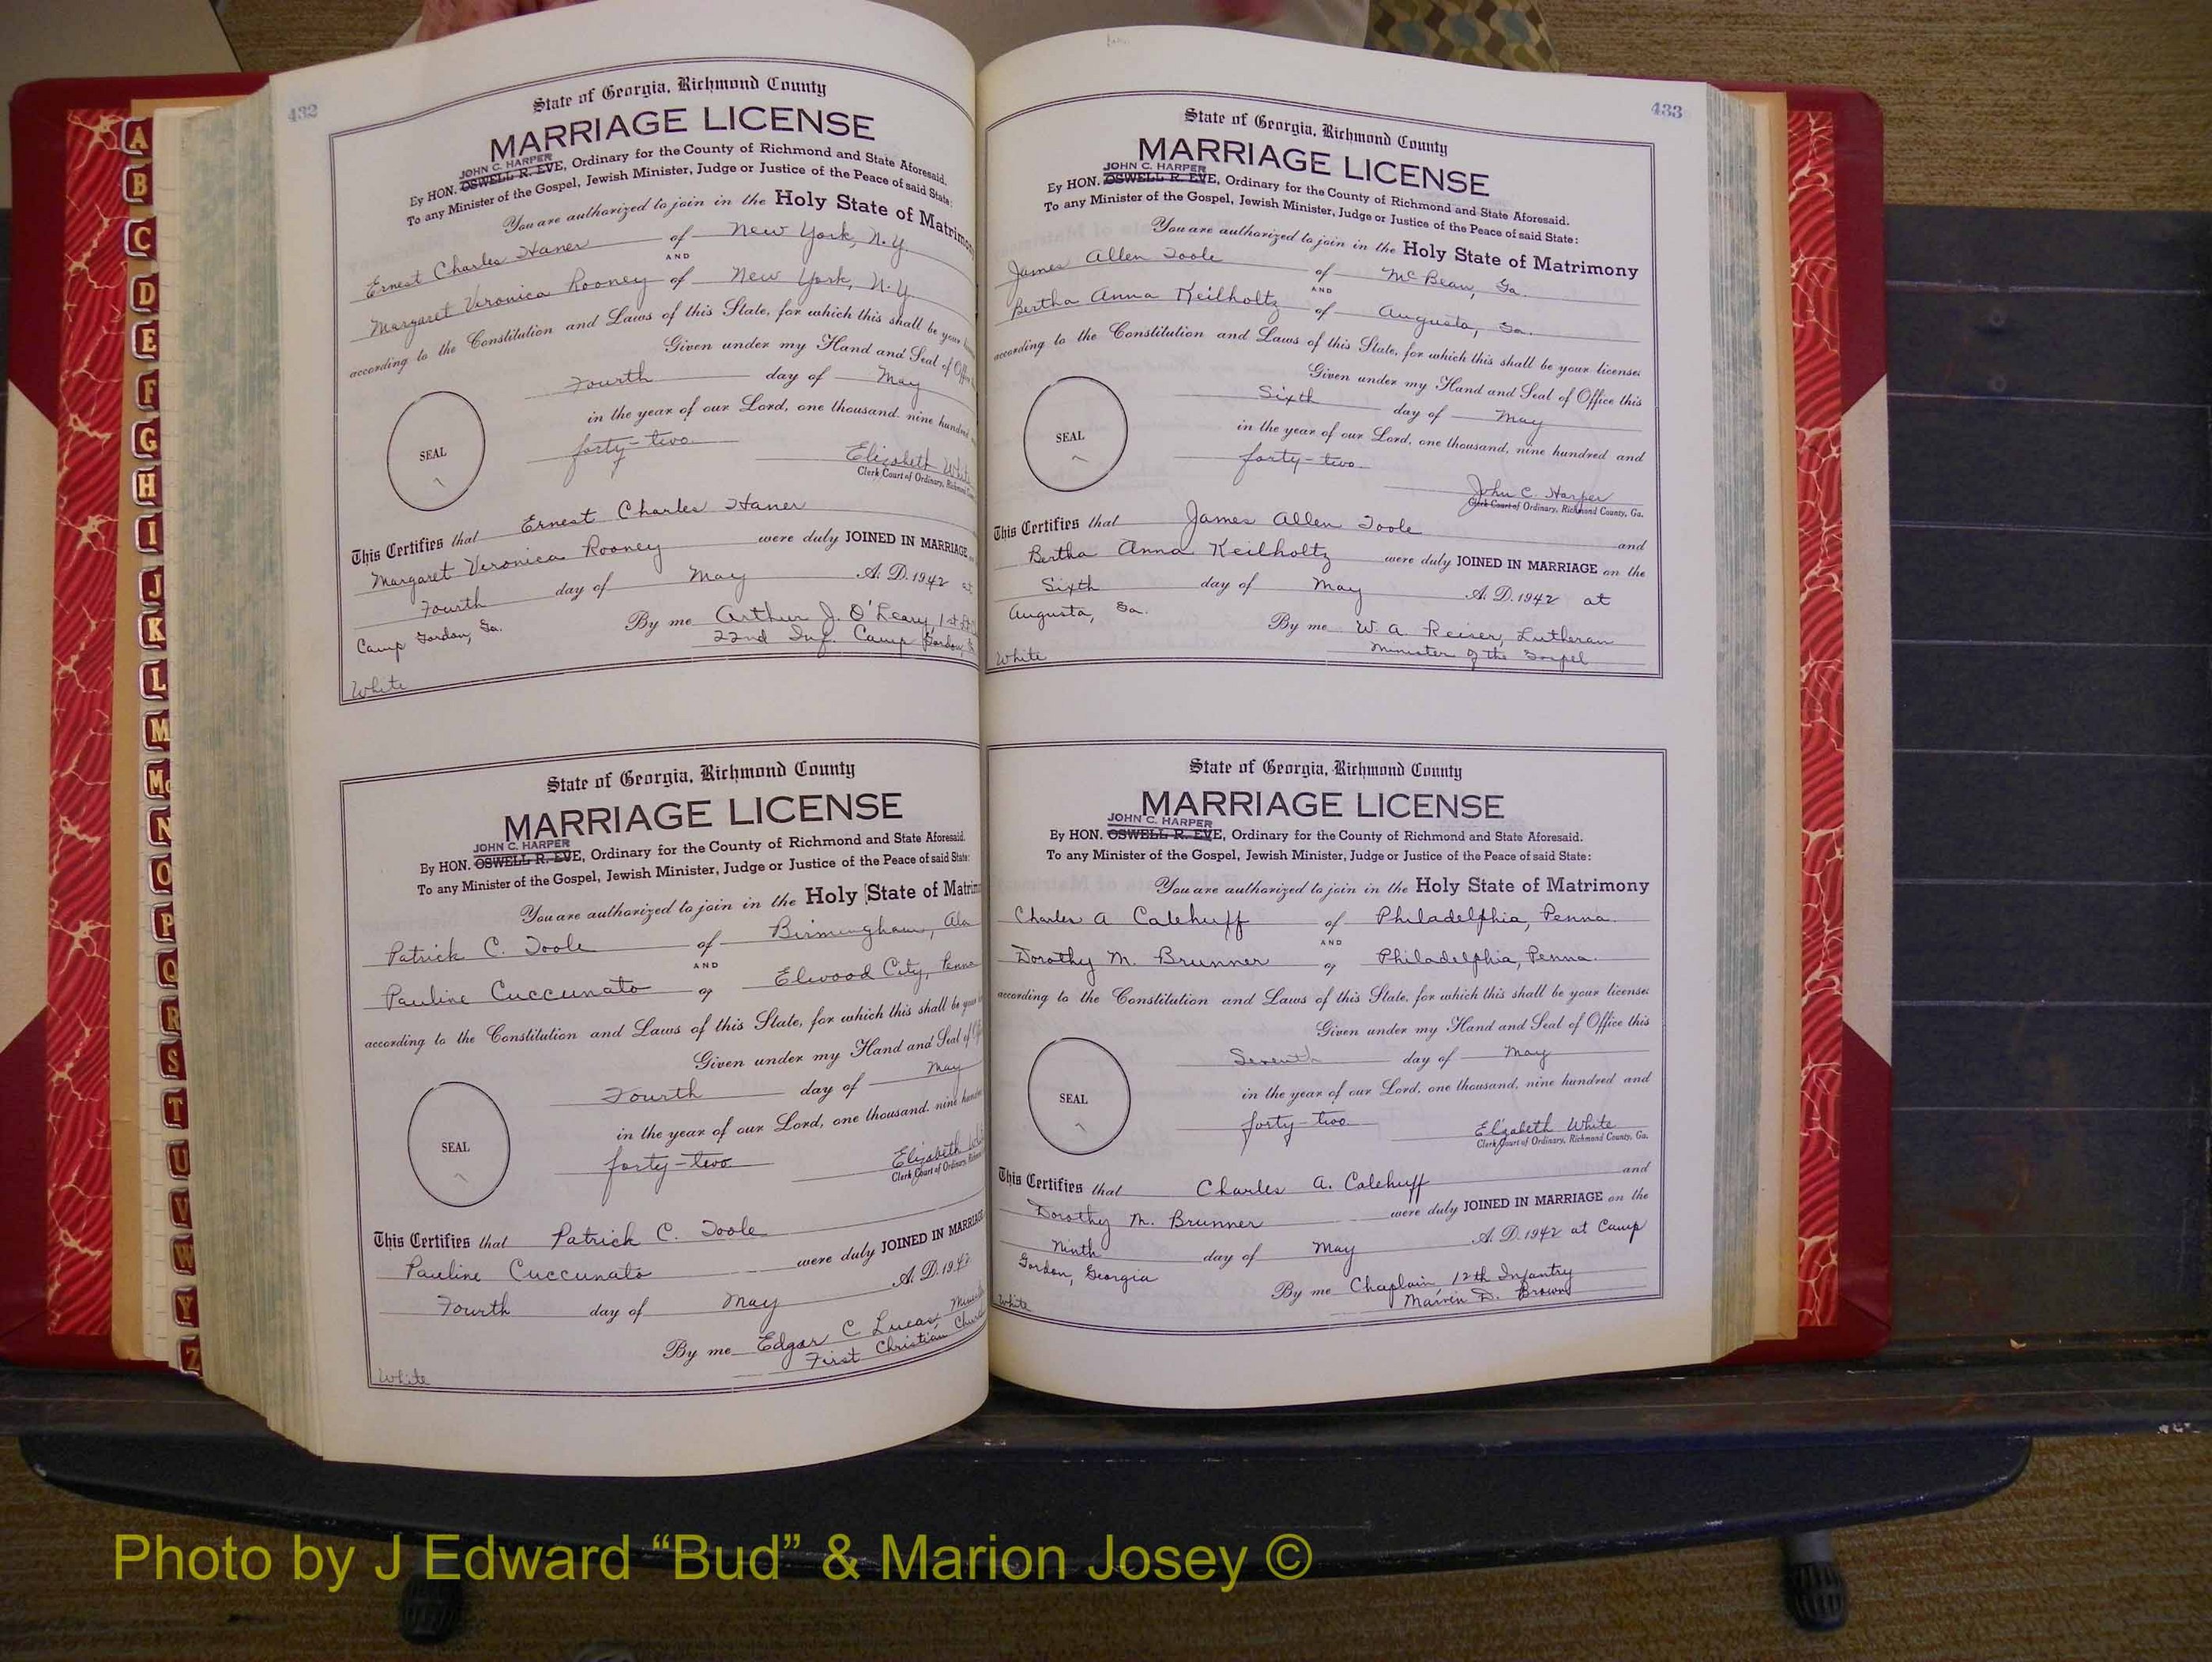 432
State of Georgia, Richmond County
MARRIAGE LICENSE
JOHN C. HARPER
By HON. OSWELL R. EVE, Ordinary for the County of Richmond and State Aforesaid.
To any Minister of the Gospel, Jewish Minister, Judge or Justice of the Peace of said State:
You are authorized to join in the Holy State of Matrimony
Ernest Charles Haner of New York, N.Y.
AND
Margaret Veronica Rooney of New York, N.Y.
according to the Constitution and Laws of this State, for which this shall be your
Given under my Hand and Seal of Office
Fourth day of May
in the year of our Lord, one thousand, nine hundred
forty-two
SEAL
Elizabeth White
Clerk Court of Ordinary, Richmond
This Certifies that Ernest Charles Haner
Margaret Veronica Rooney were duly JOINED IN MARRIAGE
Fourth day of May A. D. 1942 at
Camp Gordon, Ga.
By me Arthur J. O'Leary, 1st Lt
22nd Inf. Camp Gordon,
White
State of Georgia, Richmond County
MARRIAGE LICENSE
JOHN C. HARPER
By HON. OSWELL R. EVE, Ordinary for the County of Richmond and State Aforesaid.
To any Minister of the Gospel, Jewish Minister, Judge or Justice of the Peace of said State:
You are authorized to join in the Holy State of Matrim
Patrick C. Toole of Birmingham, Ala
AND
Pauline Cuccunato of Elwood City, Penna
according to the Constitution and Laws of this State, for which this shall be your
Given under my Hand and Seal of
Fourth day of May
in the year of our Lord, one thousand, nine
forty-two
SEAL
Elizabeth
Clerk Court of Ordinary,
This Certifies that Patrick C. Toole
Pauline Cuccunato were duly JOINED IN MARRIAGE
Fourth day of May A. D. 1942
By me Edgar C Lucas,
First Christian Church
White
433
State of Georgia, Richmond County
MARRIAGE LICENSE
JOHN C. HARPER
By HON. OSWELL R. EVE, Ordinary for the County of Richmond and State Aforesaid.
To any Minister of the Gospel, Jewish Minister, Judge or Justice of the Peace of said State:
You are authorized to join in the Holy State of Matrimony
James Allen Toole of McBean, Ga.
AND
Bertha Anna Keilholtz of Augusta, Ga.
according to the Constitution and Laws of this State, for which this shall be your license:
Given under my Hand and Seal of Office this
Sixth day of May
in the year of our Lord, one thousand, nine hundred and
forty-two
SEAL
John C. Harper
Clerk Court of Ordinary, Richmond County, Ga.
This Certifies that James Allen Toole and
Bertha Anna Keilholtz were duly JOINED IN MARRIAGE on the
Sixth day of May A. D. 1942 at
Augusta, Ga.
By me W. A. Reiser, Lutheran
Minister of the Gospel
White
State of Georgia, Richmond County
MARRIAGE LICENSE
JOHN C. HARPER
By HON. OSWELL R. EVE, Ordinary for the County of Richmond and State Aforesaid.
To any Minister of the Gospel, Jewish Minister, Judge or Justice of the Peace of said State:
You are authorized to join in the Holy State of Matrimony
Charles A Calehuff of Philadelphia, Penna.
AND
Dorothy M. Brunner of Philadelphia, Penna.
according to the Constitution and Laws of this State, for which this shall be your license:
Given under my Hand and Seal of Office this
Seventh day of May
in the year of our Lord, one thousand, nine hundred and
forty-two
SEAL
Elizabeth White
Clerk Court of Ordinary, Richmond County, Ga.
This Certifies that Charles A. Calehuff and
Dorothy M. Brunner were duly JOINED IN MARRIAGE on the
Ninth day of May A. D. 1942 at Camp
Gordon, Georgia
By me Chaplain 12th Infantry
Marvin D. Brown
White
A
B
C
D
E
F
G
H
I
J
K
L
M
Mc
N
O
P
Q
R
S
T
U
V
W
Y
Z
Photo by J Edward “Bud” & Marion Josey ©